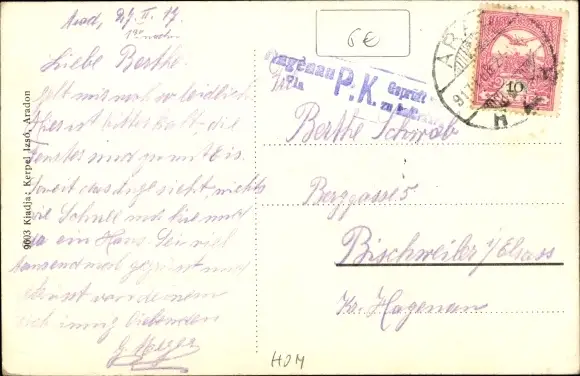 Arad, 27. II. 17.
Liebe Berthe.
geht mir noch so leidlich
Hier ist bitter kalt, die
Fenster sind ganz mit Eis.
Soweit das Auge sieht, nichts
wie Schnee und hie und
da ein Haus. Sei viel
tausend mal gegrüsst und
geküsst von deinem
dich innig liebenden
9603 Kiadja: Kerpel Izsó, Aradon
6€
Hagenau
P.K.
Geprüft
ARAD
10
Berthe Schwab
Berggasse 5
Bischweiler i/Elsass
Kr. Hagenau
HOM